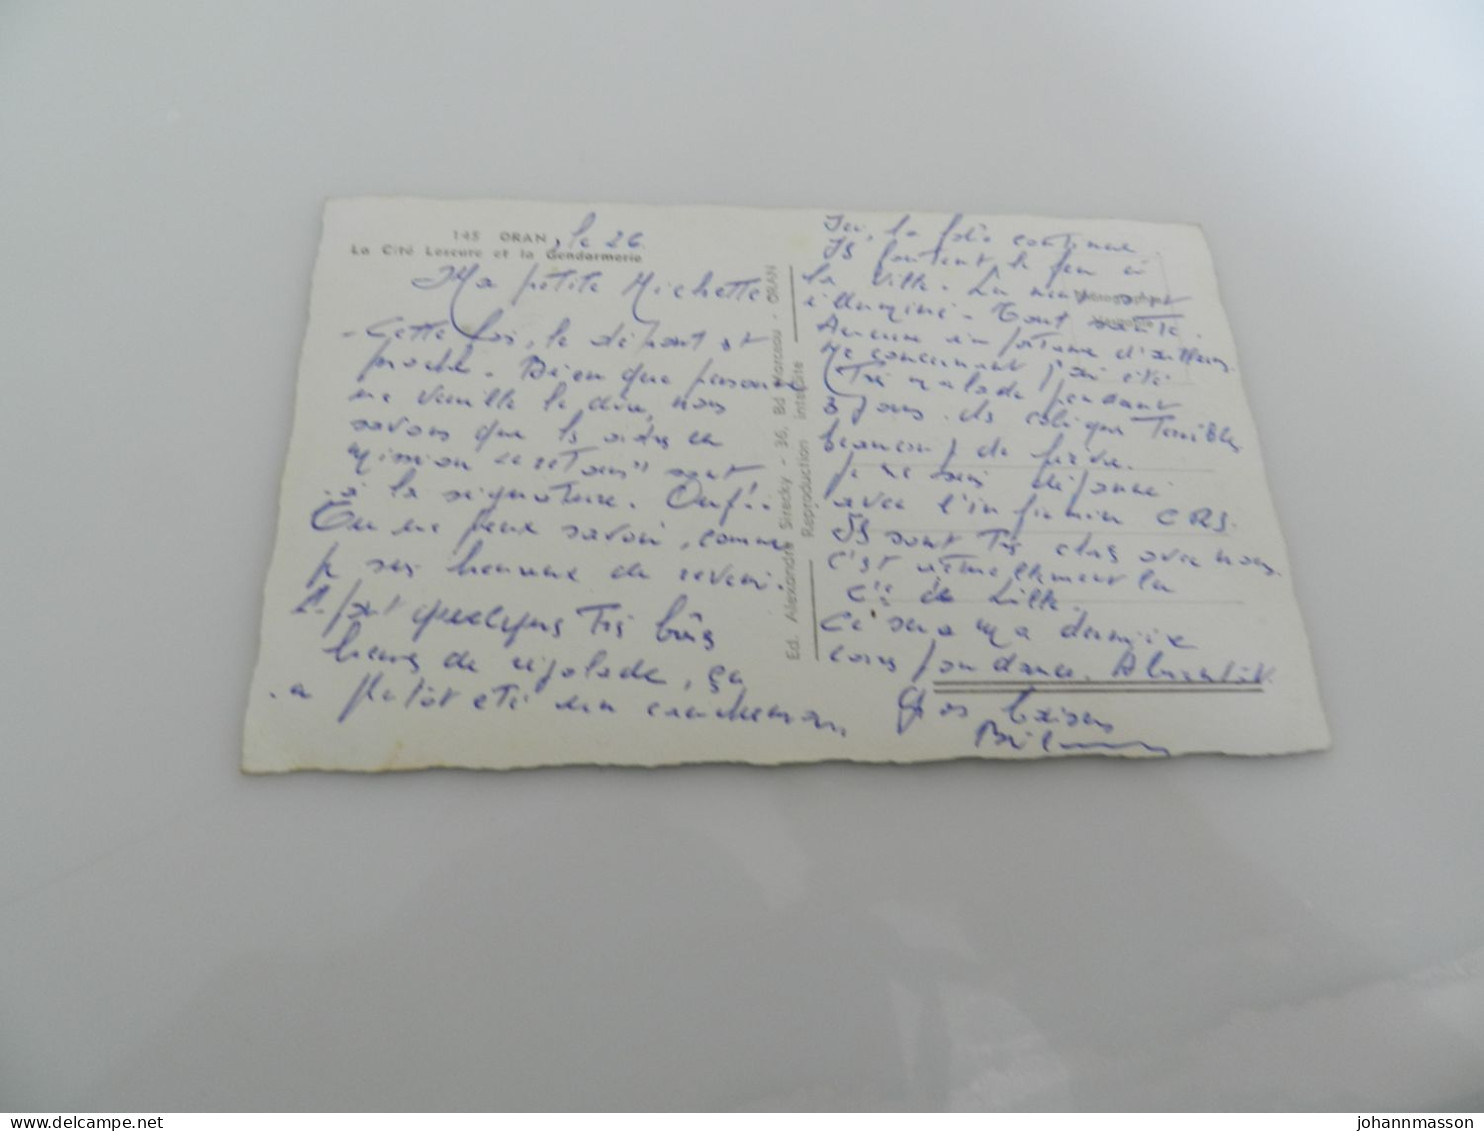 145 ORAN, le 26.
La Cité Lescure et la Gendarmerie
Ma petite Michette
- Cette fois, le départ est
proche. Bien que personne
ne veuille le dire, nous
savons que les ordres de
mission "retour" sont
à la signature. Ouf!..
Tu ne peux savoir, comme
je suis heureux de revenir.
Il y a quelques très bons
de rigolade, ça
a plutôt été
Ed. Alexandre Sirecky - 36, Bd Marceau - ORAN
Reproduction interdite
Ici, la folie continue
Ils foutent le feu à
la ville. La nuit est
illuminé. Tout saute.
Aucune importance d'ailleurs.
Me concernant j'ai été
Très malade pendant
3 jours. des coliques terribles
beaucoup de fièvre.
Je me suis
avec l'infirmier CRS.
Ils sont très avec nous.
c'est actuellement la
Cie de Lille.
Ce sera ma dernière
correspondance. A bientôt.
Gros baisers
johannmasson